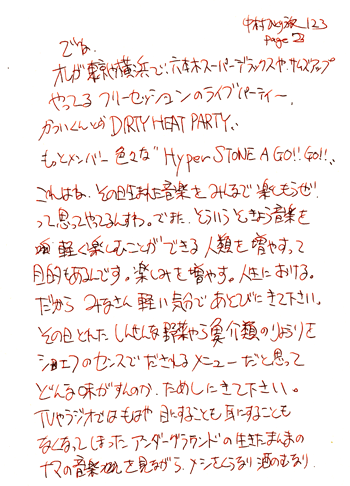 中村 123
page 23
でね、
オレが東京や横浜で、六本木スーパーデラックスや、サムズアップ
やってる フリーセッションのライブパーティー、
かっこいくんとか DIRTY HEAT PARTY、
もっとメンバー色々な" Hyper STONE A GO!! GO!!、
これはね、その日生まれた音楽をみんなで楽しもうぜ
って思ってやってるんすわ。でまた、そういう音楽を
軽く楽しむことができる人類を増やすって
目的もあるんです。楽しみを増やす。人生における。
だから みなさん軽い気分であそびにきて下さい。
その日とれた しんせんな野菜やら魚介類のりょうりを
シェフのセンスでだされるメニューだと思って
どんな味がすんのか、ためしにきて下さい。
TVやラジオではもはや 目にすることも耳にすることも
なくなってしまったアンダーグラウンドの生きたまんまの
ナマの音楽を見ながら、メシをくうなり 酒のむなり、